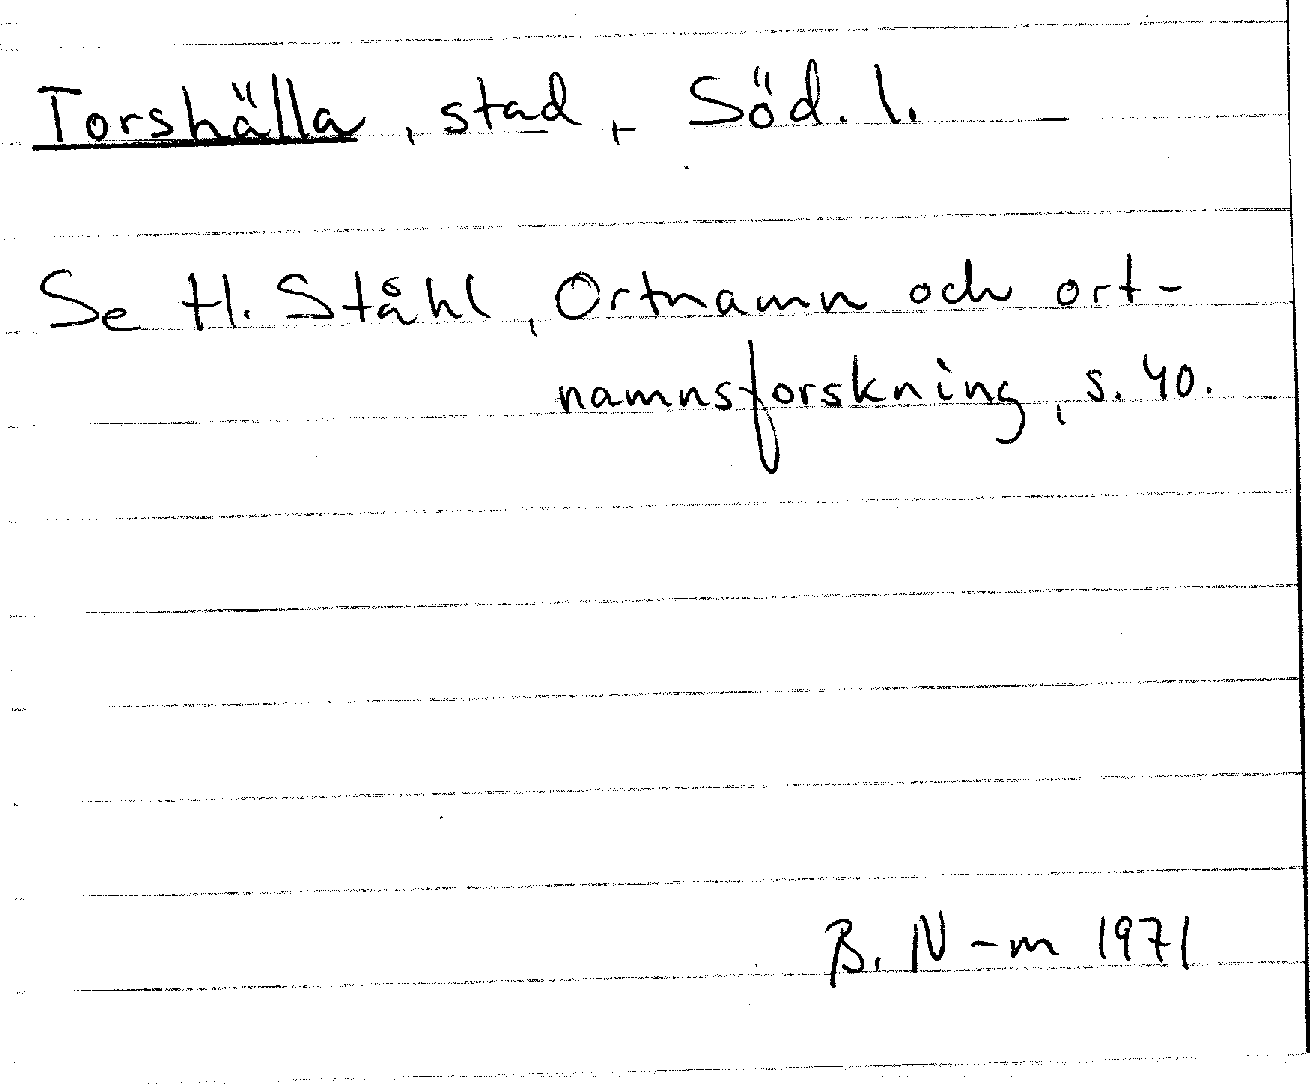 Torshälla, stad, Söd. l.
Se H. Ståhl, Ortnamn och ort-
namnsforskning, s. 40.
B. N-m 1971